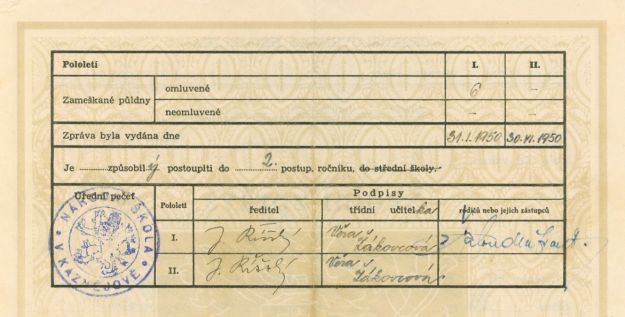 Pololetí I. II.
Zameškané půldny omluvené 6 –
neomluvené – –
Zpráva byla vydána dne 31.1.1950 30.VI.1950
Je způsobilý postoupiti do 2. postup. ročníku, do střední školy.
Úřední pečeť Pololetí Podpisy
ředitel třídní učitelka rodičů nebo jejich zástupců
I. J. Věra
Žákovcová
II. J. Věra
Žákovcová
NÁRODNÍ ŠKOLA
V KAZNĚJOVĚ